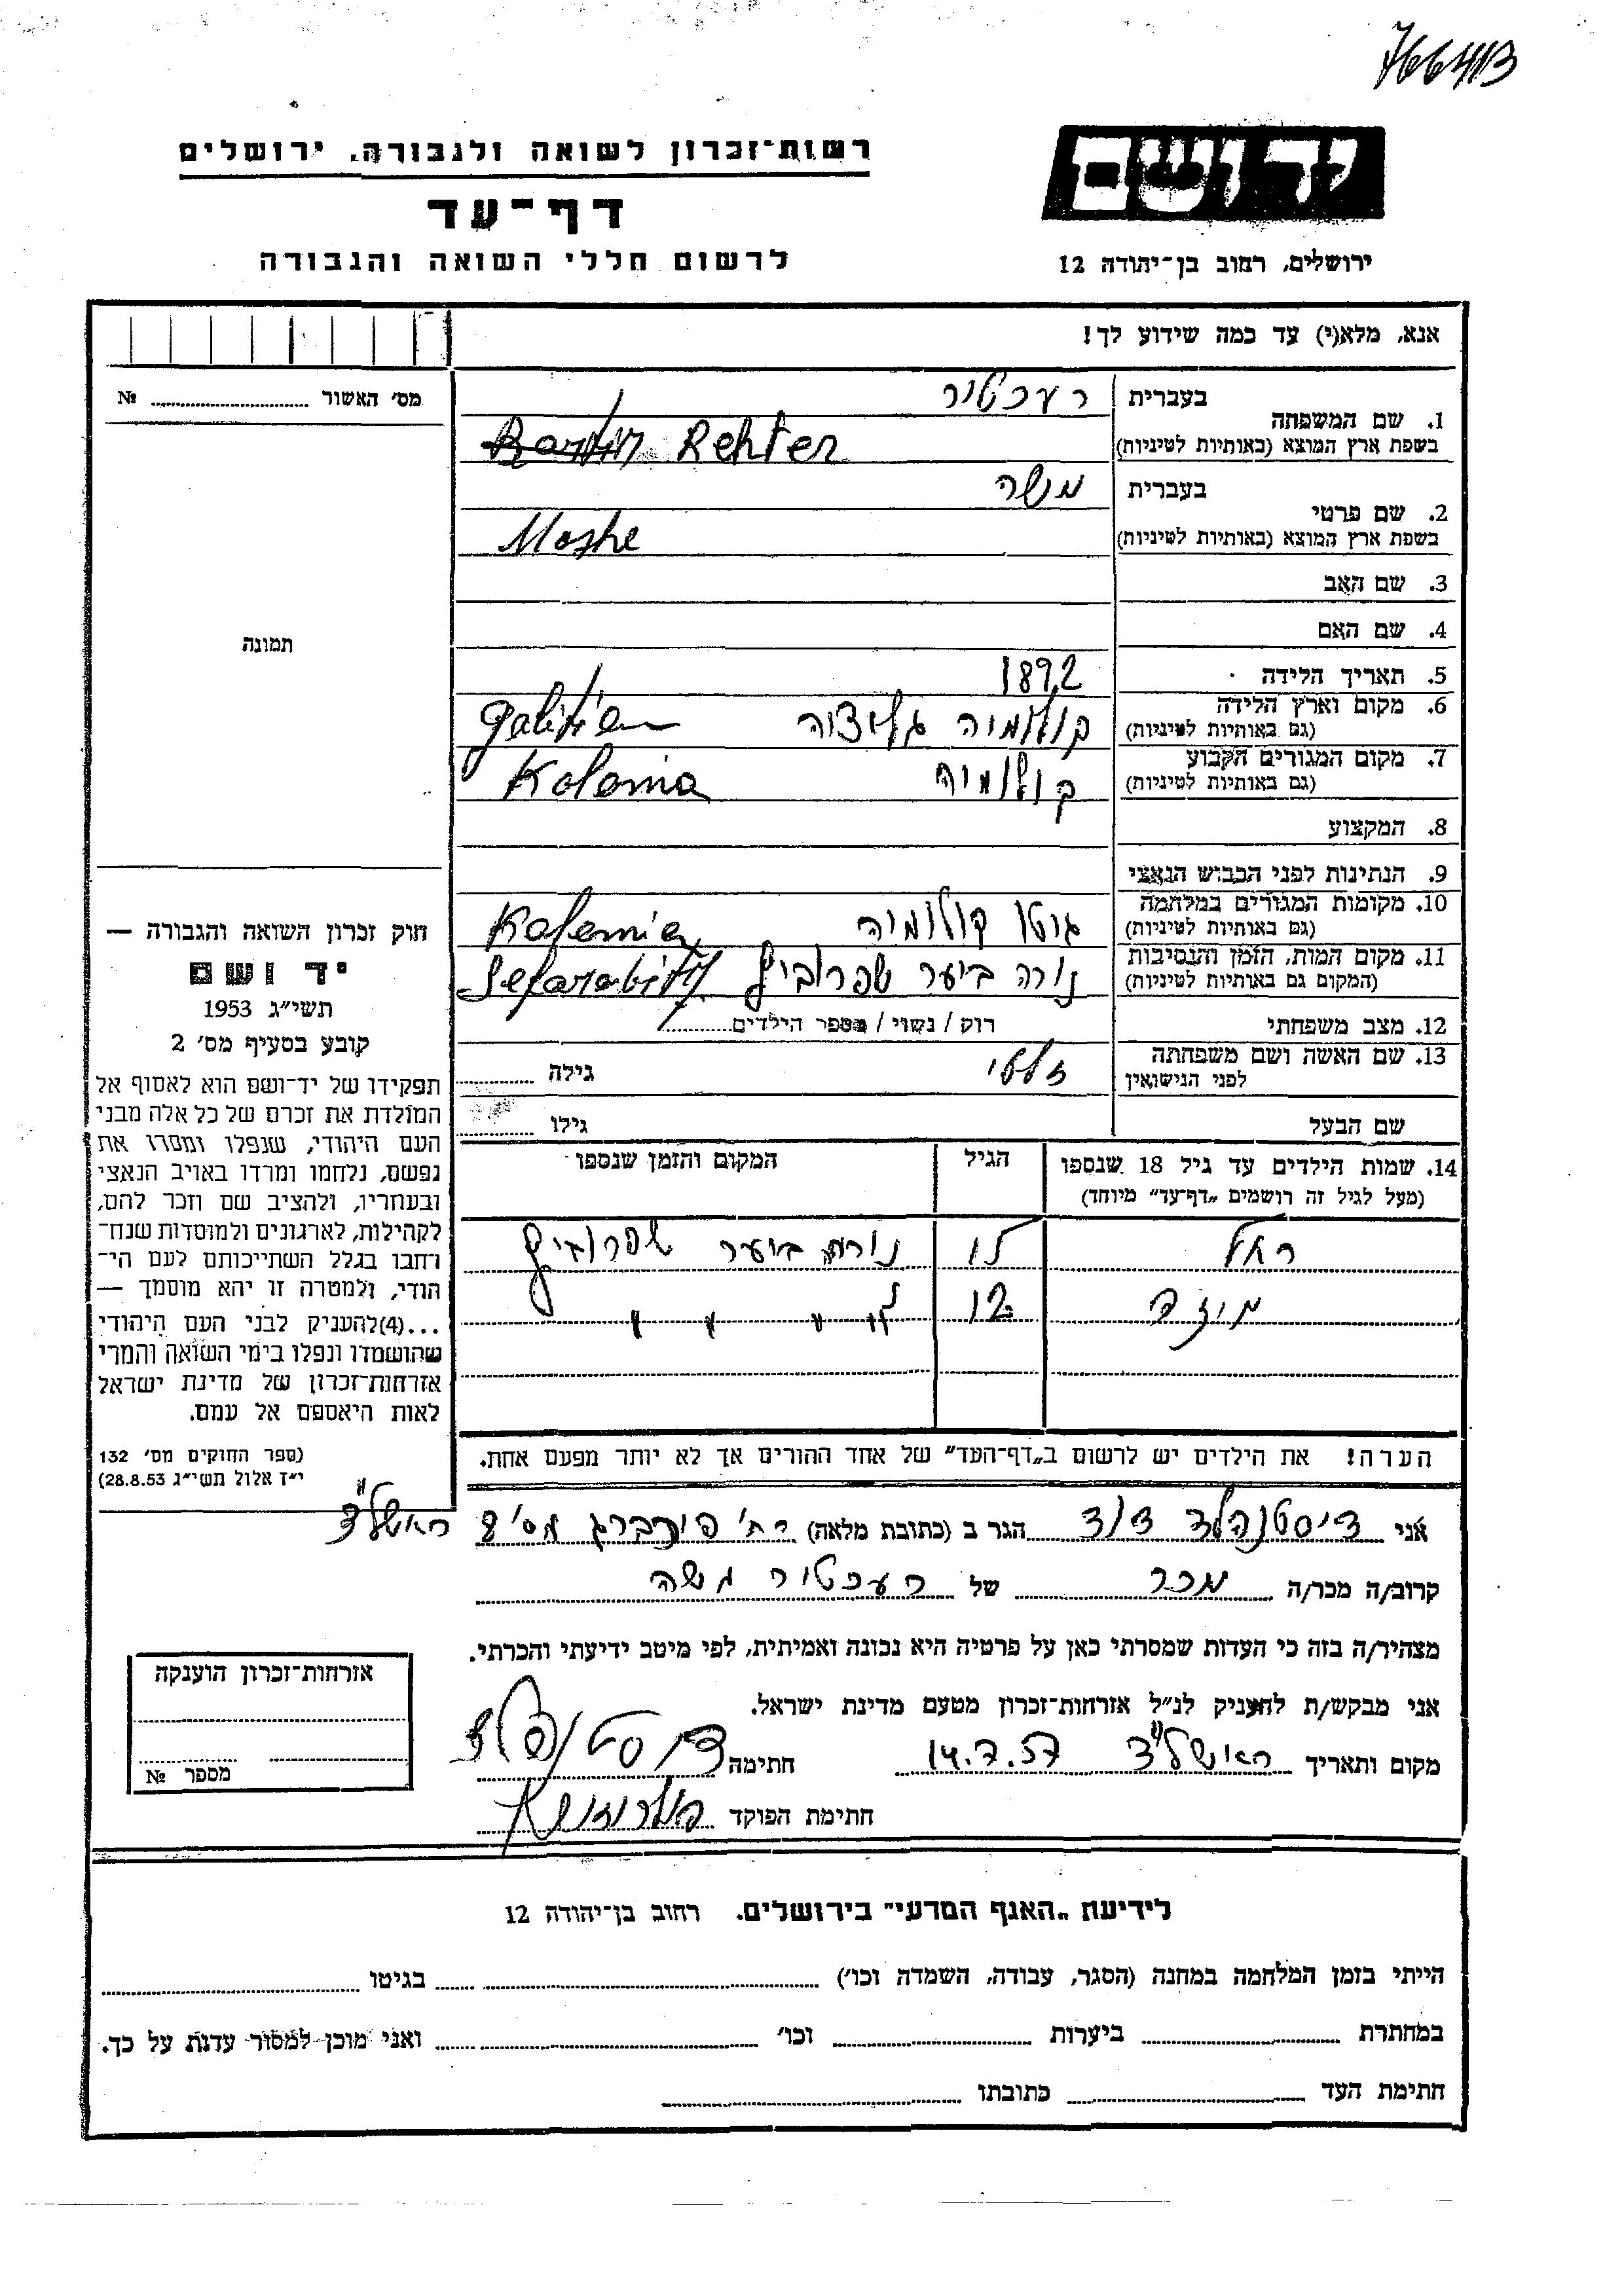 766413
רשות־זכרון לשואה ולגבורה, ירושלים
דף־עד
לרשום חללי השואה והגבורה
יד ושם
ירושלים, רחוב בן־יהודה 12
אנא, מלא(י) עד כמה שידוע לך!
מס׳ האשור № 
1. שם המשפחה
בעברית רעכטור
בשפת ארץ המוצא (באותיות לטיניות) Rehter
2. שם פרטי
בעברית משה
בשפת ארץ המוצא (באותיות לטיניות) Moshe
3. שם האב
4. שם האם
5. תאריך הלידה 1892
6. מקום וארץ הלידה קולומיה גליציה Galitien
(גם באותיות לטיניות)
7. מקום המגורים הקבוע קולומיה Kolomia
(גם באותיות לטיניות)
8. המקצוע
9. הנתינות לפני הכבוש הנאצי
10. מקומות המגורים במלחמה גטו קולומיה Kolomia
(גם באותיות לטיניות)
11. מקום המות, הזמן והנסיבות ביער שפרוביץ
(המקום גם באותיות לטיניות)
12. מצב משפחתי רוק / נשוי / מספר הילדים
13. שם האשה ושם משפחתה זלטי גילה
לפני הנישואין
שם הבעל גילו
14. שמות הילדים עד גיל 18 שנספו הגיל המקום והזמן שנספו
(מעל לגיל זה רושמים „דף־עד״ מיוחד)
רחל ביער שפרוביץ
12 〃 〃 〃
הערה! את הילדים יש לרשום ב„דף־העד״ של אחד ההורים אך לא יותר מפעם אחת.
תמונה
חוק זכרון השואה והגבורה —
יד ושם
תשי״ג 1953
קובע בסעיף מס׳ 2
תפקידו של יד־ושם הוא לאסוף אל
המולדת את זכרם של כל אלה מבני
העם היהודי, שנפלו ומסרו את
נפשם, נלחמו ומרדו באויב הנאצי
ובעוזריו, ולהציב שם וזכר להם,
לקהילות, לארגונים ולמוסדות שנח־
רבו בגלל השתייכותם לעם הי־
הודי, ולמטרה זו יהא מוסמך —
...(4)להעניק לבני העם היהודי
שהושמדו ונפלו בימי השואה והמרי
אזרחות־זכרון של מדינת ישראל
לאות היאספם אל עמם.
(ספר החוקים מס׳ 132
י״ז אלול תשי״ג 28.8.53)
אני דיסטנפלד דוד הגר ב (כתובת מלאה) רח׳ פינברג מס׳ 8 ראשל״צ
קרוב/ה מכר/ה מכר של רעכטור משה
מצהיר/ה בזה כי העדות שמסרתי כאן על פרטיה היא נכונה ואמיתית, לפי מיטב ידיעתי והכרתי.
אני מבקש/ת להעניק לנ״ל אזרחות־זכרון מטעם מדינת ישראל.
מקום ותאריך ראשל״צ 14.7.57 חתימה דיסטנפלד
חתימת הפוקד
אזרחות־זכרון הוענקה
מספר №
לידיעת „האגף המדעי״ בירושלים. רחוב בן־יהודה 12
הייתי בזמן המלחמה במחנה (הסגר, עבודה, השמדה וכו׳) בגיטו
במחתרת ביערות וכו׳ ואני מוכן למסור עדות על כך.
חתימת העד כתובתו